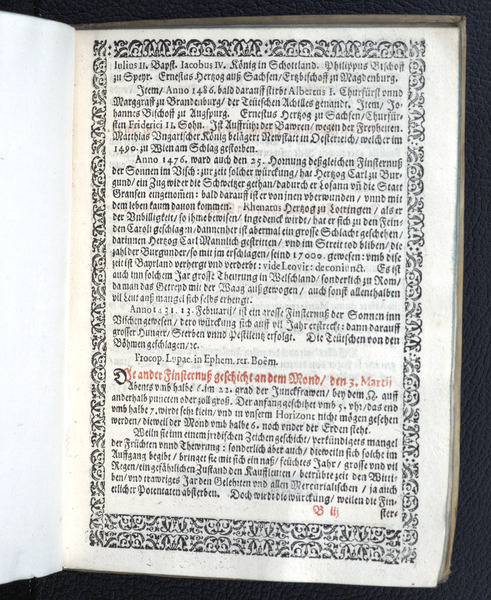 Iulius II. Bapst. Iacobus IV. König in Schottland. Philippus Bischoff
zu Speyr. Ernestus Hertzog auß Sachsen/ Ertzbischoff zu Magdenburg.
Item/ Anno 1486. bald darauff stirbt Albertus I. Churfürst vnnd
Marggraff zu Brandenburg/ der Teütschen Achilles genandt. Item/ Jo-
hannes Bischoff zu Augspurg. Ernestus Hertzog zu Sachsen/ Churfür-
sten Friderici II. Sohn. Ist Auffrühr der Bawren/ wegen der Freyheiten.
Matthias Vngarischer König belägert Newstatt in Oesterreich/ welcher im
1490. zu Wien am Schlag gestorben.
Anno 1476. ward auch den 25. Hornung deßgleichen Finsternuß
der Sonnen im Visch: zur zeit solcher würckung/ hat Hertzog Carl zu Bur-
gund/ ein Zug wider die Schweitzer gethan/ dadurch er Losann vñ die Statt
Gransen eingenom̃en: bald darauff ist er von jnen vberwunden/ vnnd mit
dem leben kaum davon kommen. Rhenatus Hertzog zu Lottringen/ als er
der Vnbilligkeit/ so ihme bewisen/ ingedenck wirdt/ hat er sich zu den Fein-
den Caroli geschlagen/ dannenher ist abermal ein grosse Schlacht geschehen/
darinnen Hertzog Carl Mannlich gestritten/ vnd im Streit tod bliben/ die
zahl der Burgunder/ so mit jm erschlagen/ seind 17000. gewesen: vmb dise
zeit ist Bayrland verhergt vnd verderbt: vide Leovit: de coniunct. Es ist
auch inn solchem Jar grosse Theurung in Welschland/ sonderlich zu Rom/
da man das Getreyd mit der Waag außgewogen/ auch sonst allenthalben
vil Leut auß mangel sich selbs erhengt.
Anno 1421. 13. Februarij/ ist ein grosse Finsternuß der Sonnen im
Vischen gewesen/ dero würckung sich auff vil Jahr erstreckt: dann darauff
grosser Hunger/ Sterben vnnd Pestilentz erfolgt. Die Teutschen von den
Böhmen geschlagen/ ꝛc.
Procop. Lupac. in Ephem. rer. Boëm.
DJe ander Finsternuß geschicht an dem Mond/ den 3. Martij
Abents vmb halbe 6. im 22. grad der Junckfrawen/ bey dem ☊. auff
anderhalb puncten oder zoll groß. Der anfang geschihet vmb 5. vhr/ das end
vmb halbe 7. wirdt sehr klein/ vnd in vnserm Horizont nichts mögen gesehen
werden/ dieweil der Mond vmb halbe 6. noch vnder der Erden steht.
Weiln sie inn einem jrrdischen Zeichen geschicht/ verkündigets mangel
der Früchten vnnd Thewrung: sonderlich aber auch/ dieweiln sich solche im
Auffgang begibt/ bringet sie mit sich ein naß/ feüchtes Jahr/ grosse vnd vil
Regen/ ein gefährlichen Zustand den Kauffleüten/ betrübte zeit den Witti-
ben/ vnd trawriges Jar den Gelehrten vnd allen Mercurialischen/ ja auch
etlicher Potentaten absterben. Doch wirdt die würckung/ weilen die Fin-
B iij
ster-